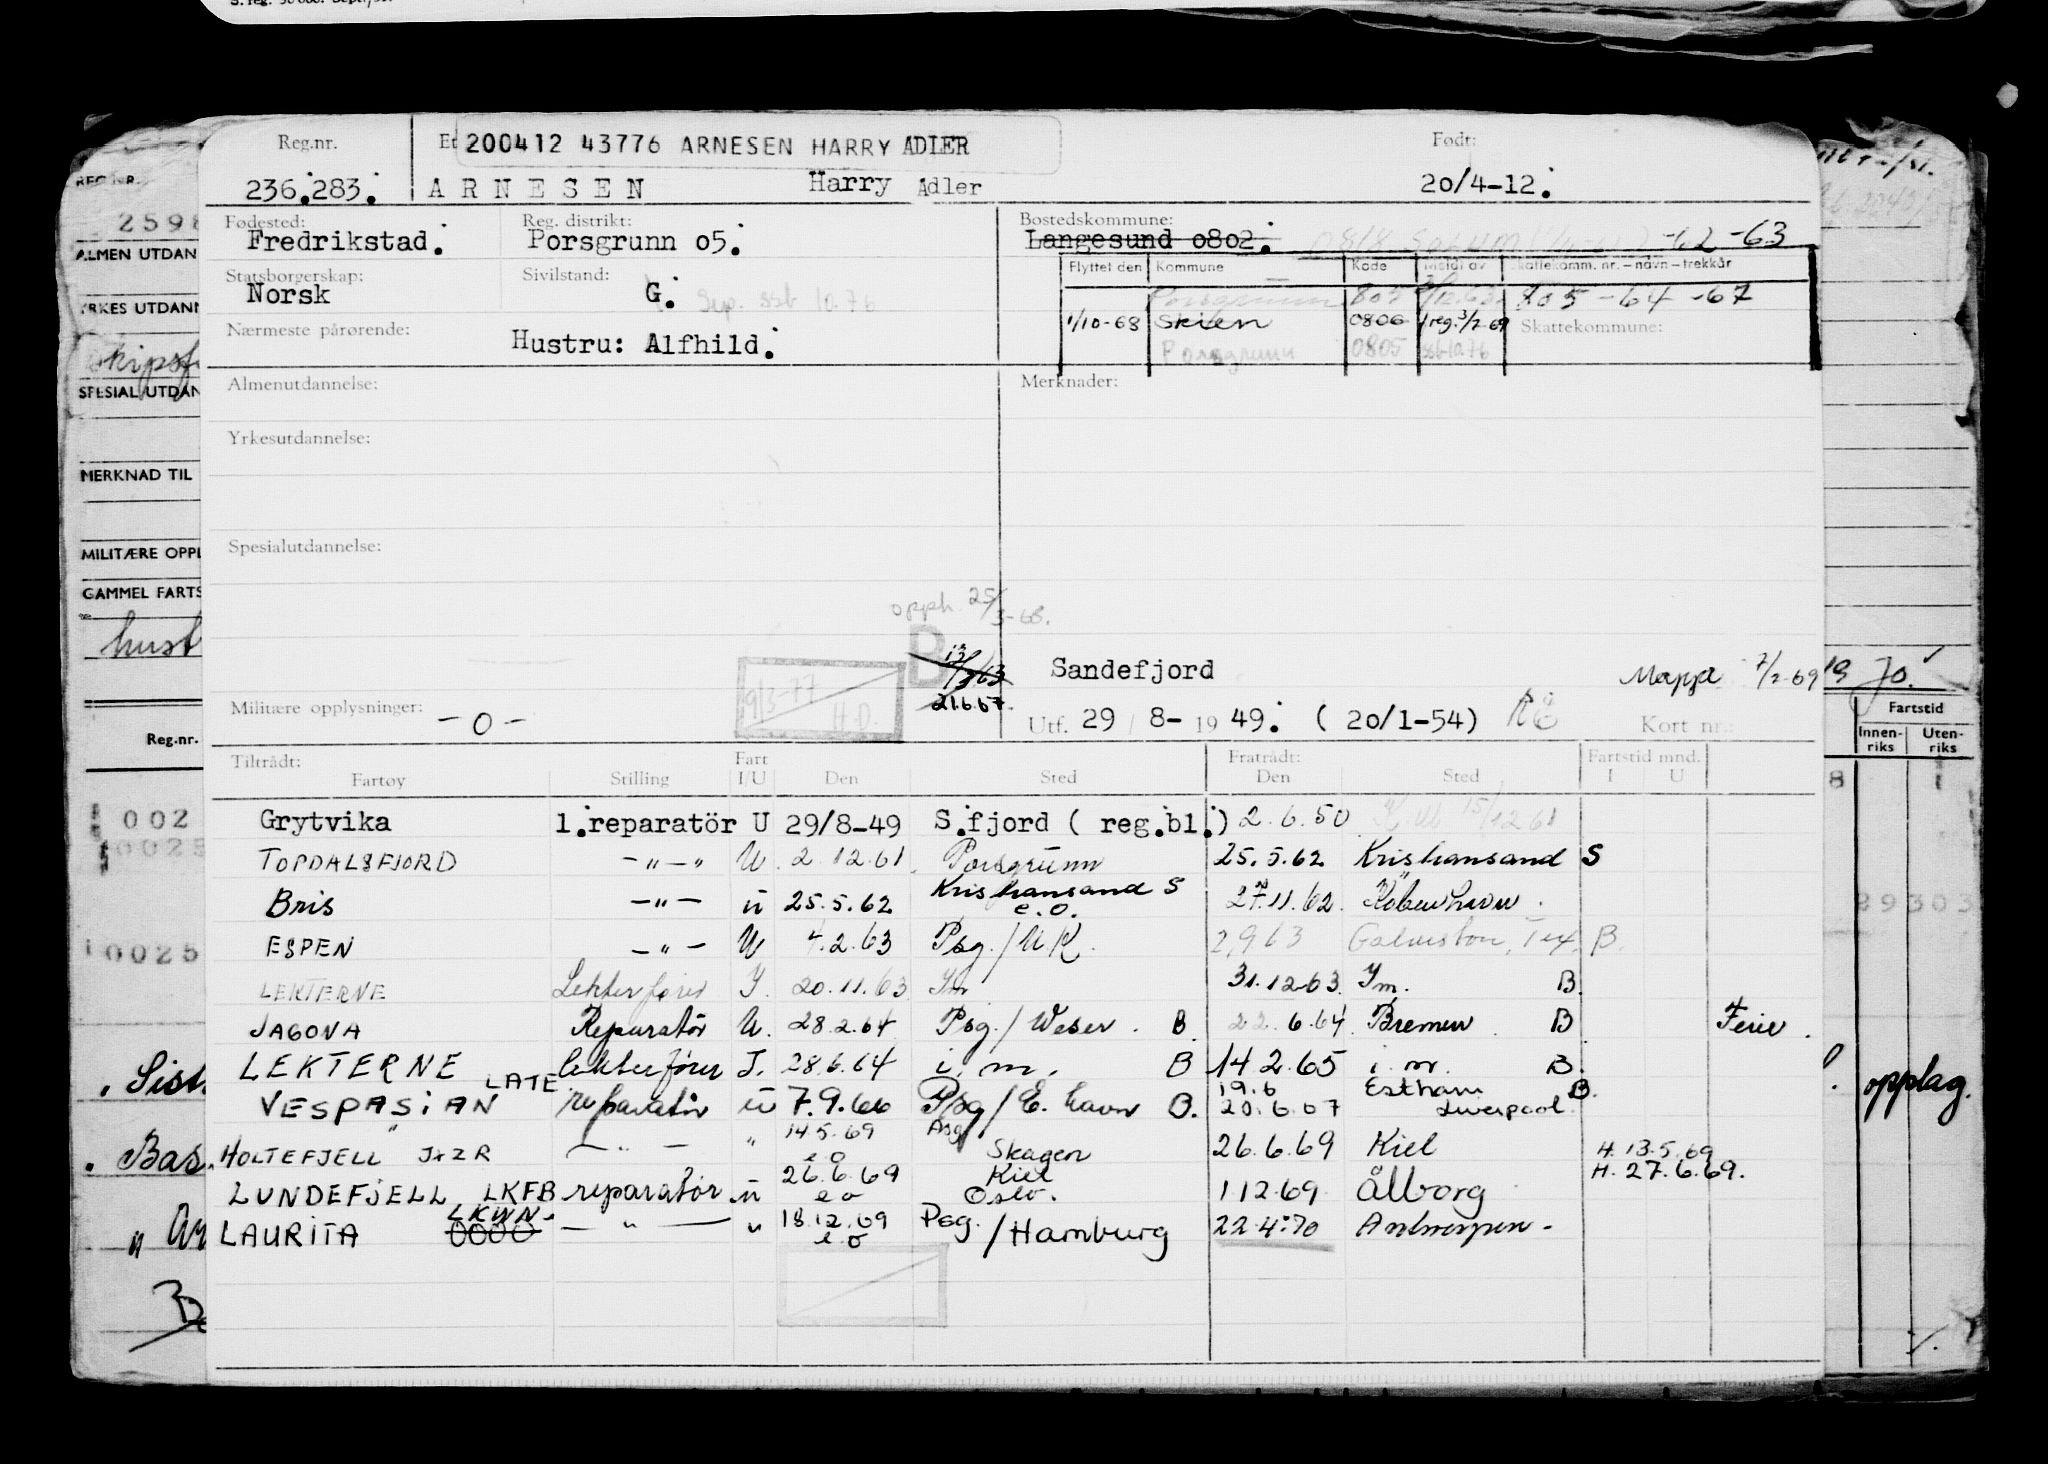 Reg.nr.
200412 43776 ARNESEN HARRY ADLER
Født:
236.283. ARNESEN Harry Adler 20/4-12.
Fødested: Reg. distrikt: Bostedskommune:
Fredrikstad. Porsgrunn o5. Langesund o8o2. -62 -63
Flyttet den Kommune Kode Meldt av Skattekomm. nr. – navn – trekkår
Statsborgerskap: Sivilstand:
Norsk G. Sep. ssb 10.76 Porsgrunn 805 2/12.63. 805 -64 -67
1/10-68 Skien 0806 reg. 3/2-69 Skattekommune:
Nærmeste pårørende:
Hustru: Alfhild. Porsgrunn 0805 ssb 10.76
Almenutdannelse: Merknader:
Yrkesutdannelse:
Spesialutdannelse:
opph. 25/3-68.
B 13/ 63
Sandefjord Mappe 7/2-69
9/3-77 H.D. 21.6.67.
Militære opplysninger: -o- Utf. 29 / 8- 1949. ( 20/1-54) Kort nr.:
Tiltrådt: Fart Fratrådt: Fartstid mnd.
Fartøy Stilling I/U Den Sted Den Sted I U
Grytvika 1.reparatör U 29/8-49 S.fjord ( reg.bl.) 2.6.50 15/12 61
TOPDALSFJORD -"-" U. 2.12.61. Porsgrunn 25.5.62 Kristiansand S
Bris -"- u 25.5.62 Kristiansand S e.o. 27.11.62. København.
ESPEN -"- U 4.2.63 Psg./UK. 2,9 63 Galveston, Tex. B.
LEKTERNE Lekterfører I. 20.11.63 Im 31.12.63. Im. B.
JAGONA Reparatör U. 28.2.64 Psg./Weser. B. 22.6.64. Bremen B Ferie.
LEKTERNE lekterfører I. 28.6.64 i.m. B 14 2.65 i.m. B.
VESPASIAN LATE reparatör u 7.9.66 Psg/E.havn B. 19.6 20.6.67 Estham Liverpool. B.
HOLTEFJELL JXZR -"- " 14.5.69 e o Psg Skagen 26.6.69 Kiel H. 13.5.69
LUNDEFJELL LKFB reparatör u 26.6.69 e o Kiel Oslo. 1 12.69 Ålborg H. 27.6.69.
LAURITA LKWN. 0000 -"- " 18.12.69 e o Psg./Hamburg 22.4.70 Antwerpen -
REG.NR.
2598
ALMEN UTDAN
YRKES UTDANN
SPESIAL UTDAN
MERKNAD TIL
MILITÆRE OPPL
GAMMEL FARTS
hust
Reg.nr.
002
0025
0025
. Sist.
. Bas.
19 70.
Fartstid
Innen-riks Uten-riks
8
29303
opplag.